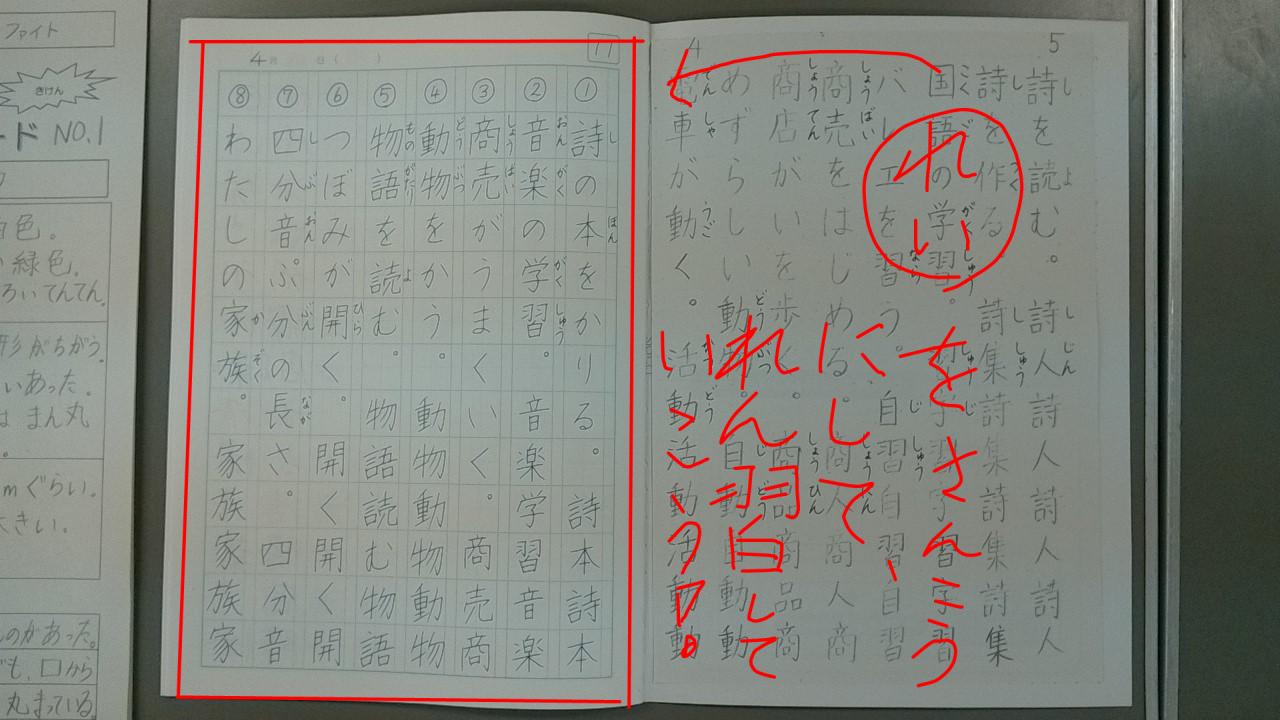 5
詩を読む。詩人詩人詩人詩人
詩を作る 詩集詩集詩集詩集
国語の学習。
バレエを習う。自習自習自習
商売をはじめる。商人商人商
商店がいを歩く。商品商品商
めずらしい動物。自動自動動
電車が動く。活動活動活動動
4
れい
をさんこう
にして、
れん習して
11
4月 日( )
①詩の本をかりる。詩本詩本
②音楽の学習。音楽学習音楽
③商売がうまくいく。商売商
④動物をかう。動物動物動物
⑤物語を読む。物語読む物語
⑥つぼみが開く。開く開く開
⑦四分音ぷ分の長さ。四分音
⑧わたしの家族。家族家族家
ファイト
きけん
ード NO.1
色。
緑色。
ろいてんてん。
形がちがう。
いあった。
は まん丸
mぐらい。
大きい。
ものがあった。
でも、口から
丸まっている。